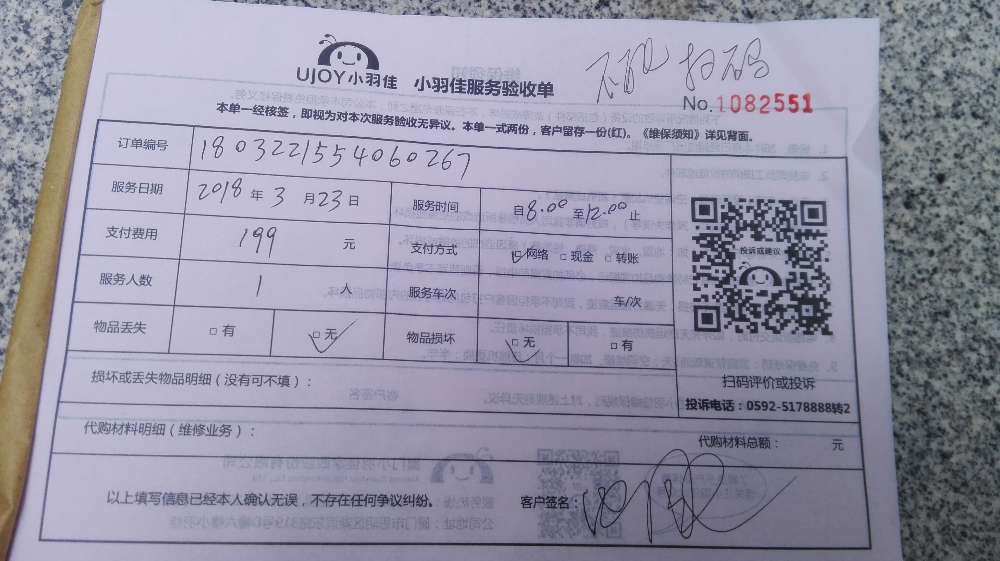 UJOY小羽佳 小羽佳服务验收单
扫码
No.1082551
本单一经核签，即视为对本次服务验收无异议。本单一式两份，客户留存一份(红)。《维保须知》详见背面。
订单编号 1803221554060267
服务日期 2018 年 3 月 23 日 服务时间 自8.00 至12.00 止
支付费用 199 元 支付方式 ☑网络 □现金 □转账
投诉或建议
服务人数 1 人 服务车次 车/次
物品丢失 □有 ☑无 物品损坏 ☑无 □有
扫码评价或投诉
投诉电话：0592-5178888转2
损坏或丢失物品明细（没有可不填）：
代购材料明细（维修业务）： 代购材料总额： 元
以上填写信息已经本人确认无误，不存在任何争议纠纷。 客户签名：